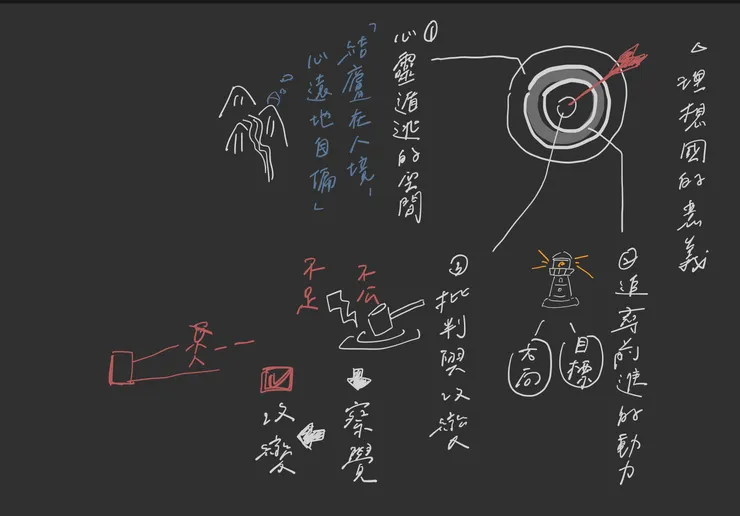 理想國的意義
①心靈遁逃的空間
「結廬在人境,
心遠地自偏」
②追尋前進的動力
目標
方向
③批判與改變
不公
不足
察覺
改變